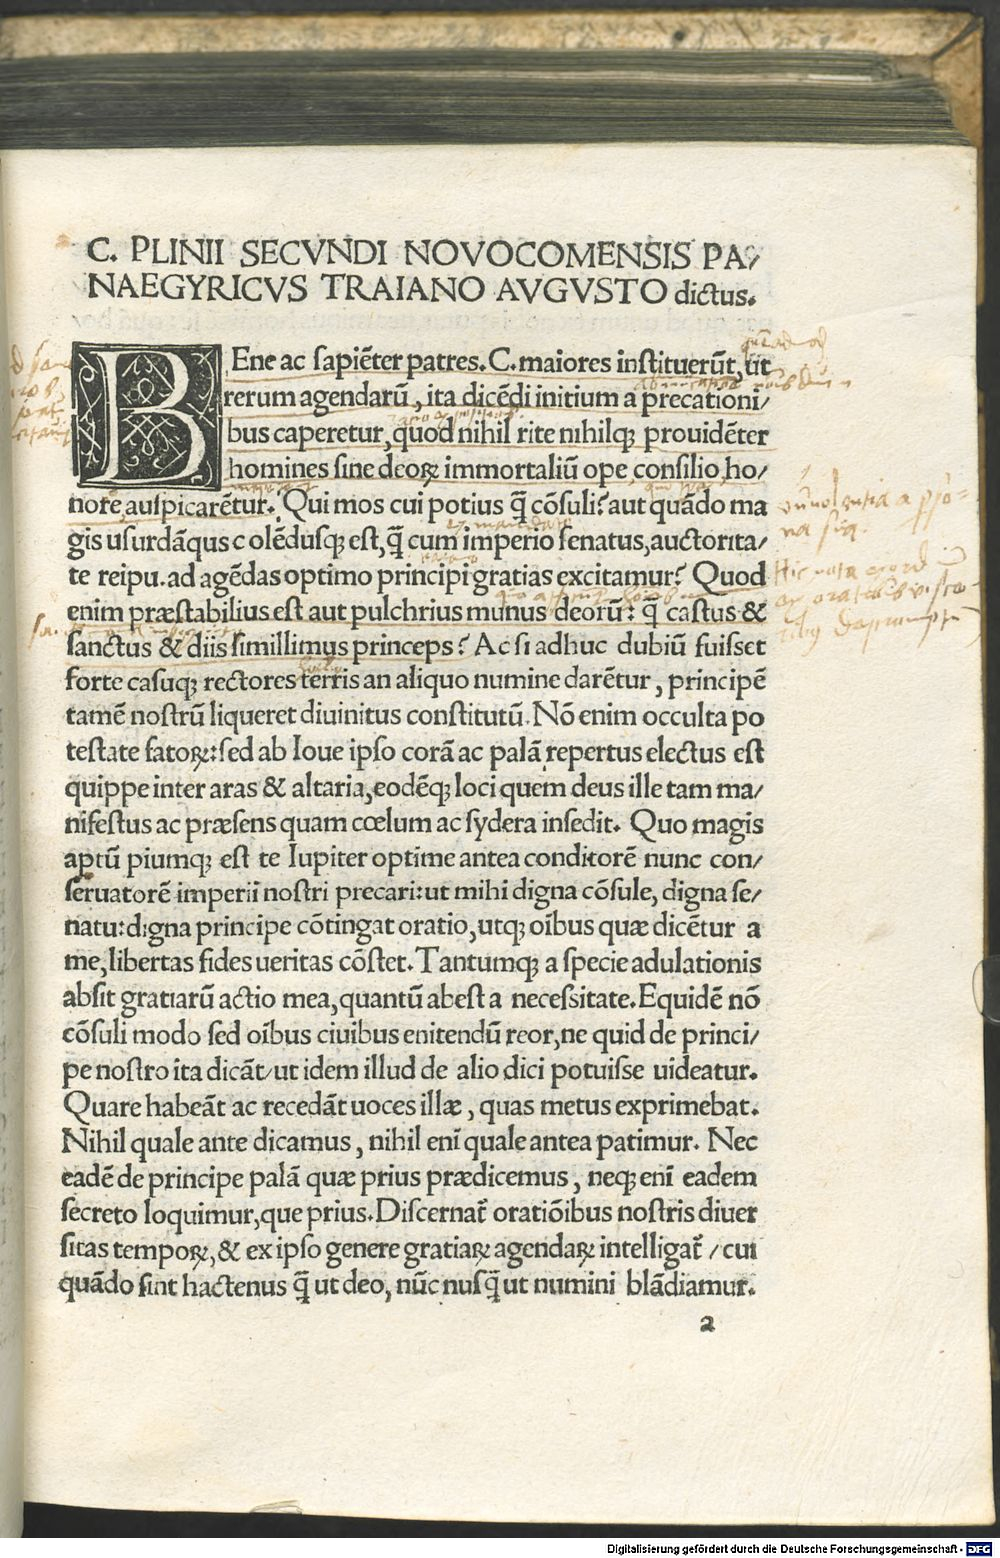 C. PLINII SECVNDI NOVOCOMENSIS PA/
NAEGYRICVS TRAIANO AVGVSTO dictus.
BEne ac sapiẽter patres. C. maiores instituerũt, ut
rerum agendarũ, ita dicẽdi initium a precationi/
bus caperetur, quod nihil rite nihilq; prouidẽter
homines sine deoꝝ immortaliũ ope, consilio, ho/
nore, auspicarẽtur. Qui mos cui potius q̃ cõsuli? aut quãdo ma
gis usurdãqus c olẽdusq; est, q̃ cum imperio senatus, auctorita/
te reipu. ad agẽdas optimo principi gratias excitamur? Quod
enim præstabilius est aut pulchrius munus deorũ: q̃ castus &
sanctus & diis simillimus princeps? Ac si adhuc dubiũ fuisset
forte casuq; rectores terris an aliquo numine darẽtur, principẽ
tamẽ nostrũ liqueret diuinitus constitutũ. Nõ enim occulta po
testate fatoꝝ: sed ab Ioue ipso corã ac palã repertus electus est
quippe inter aras & altaria, eodẽq; loci quem deus ille tam ma/
nifestus ac præsens quam cœlum ac sydera insedit. Quo magis
aptũ piumq; est te Iupiter optime antea conditorẽ nunc con/
seruatorẽ imperii nostri precari: ut mihi digna cõsule, digna se/
natu: digna principe cõtingat oratio, utq; oĩbus quæ dicẽtur a
me, libertas fides ueritas cõstet. Tantumq; a specie adulationis
absit gratiarũ actio mea, quantũ abest a necessitate. Equidẽ nõ
cõsuli modo sed oĩbus ciuibus enitendũ reor, ne quid de princi/
pe nostro ita dicãt/ ut idem illud de alio dici potuisse uideatur.
Quare habeãt ac recedãt uoces illæ, quas metus exprimebat.
Nihil quale ante dicamus, nihil enĩ quale antea patimur. Nec
eadẽ de principe palã quæ prius prædicemus, neq; enĩ eadem
secreto loquimur, que prius. Discernat̃ oratiõibus nostris diuer
sitas tempoꝝ, & ex ipso genere gratiaꝝ agendaꝝ intelligat̃ / cui
quãdo sint hactenus q̃ ut deo, nũc nusq̃ ut numini blãdiamur.
a
Digitalisierung gefördert durch die Deutsche Forschungsgemeinschaft - DFG